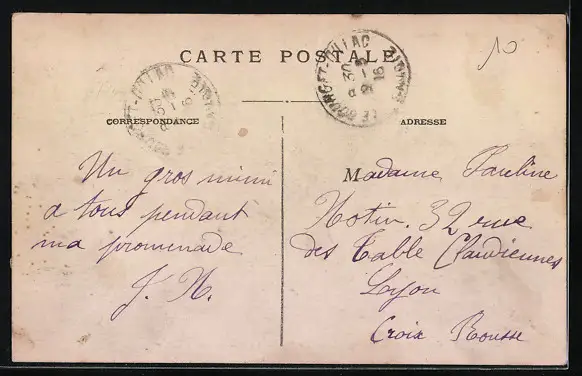 10
CARTE POSTALE
LE BOURGET-DU-LAC
SAVOIE
30 -5
16
CORRESPONDANCE
ADRESSE
Un gros mimi
a tous pendant
ma promenade
J. N.
Madame Pauline
Notin. 32 rue
des Table Claudiennes
Lyon
Croix Rousse